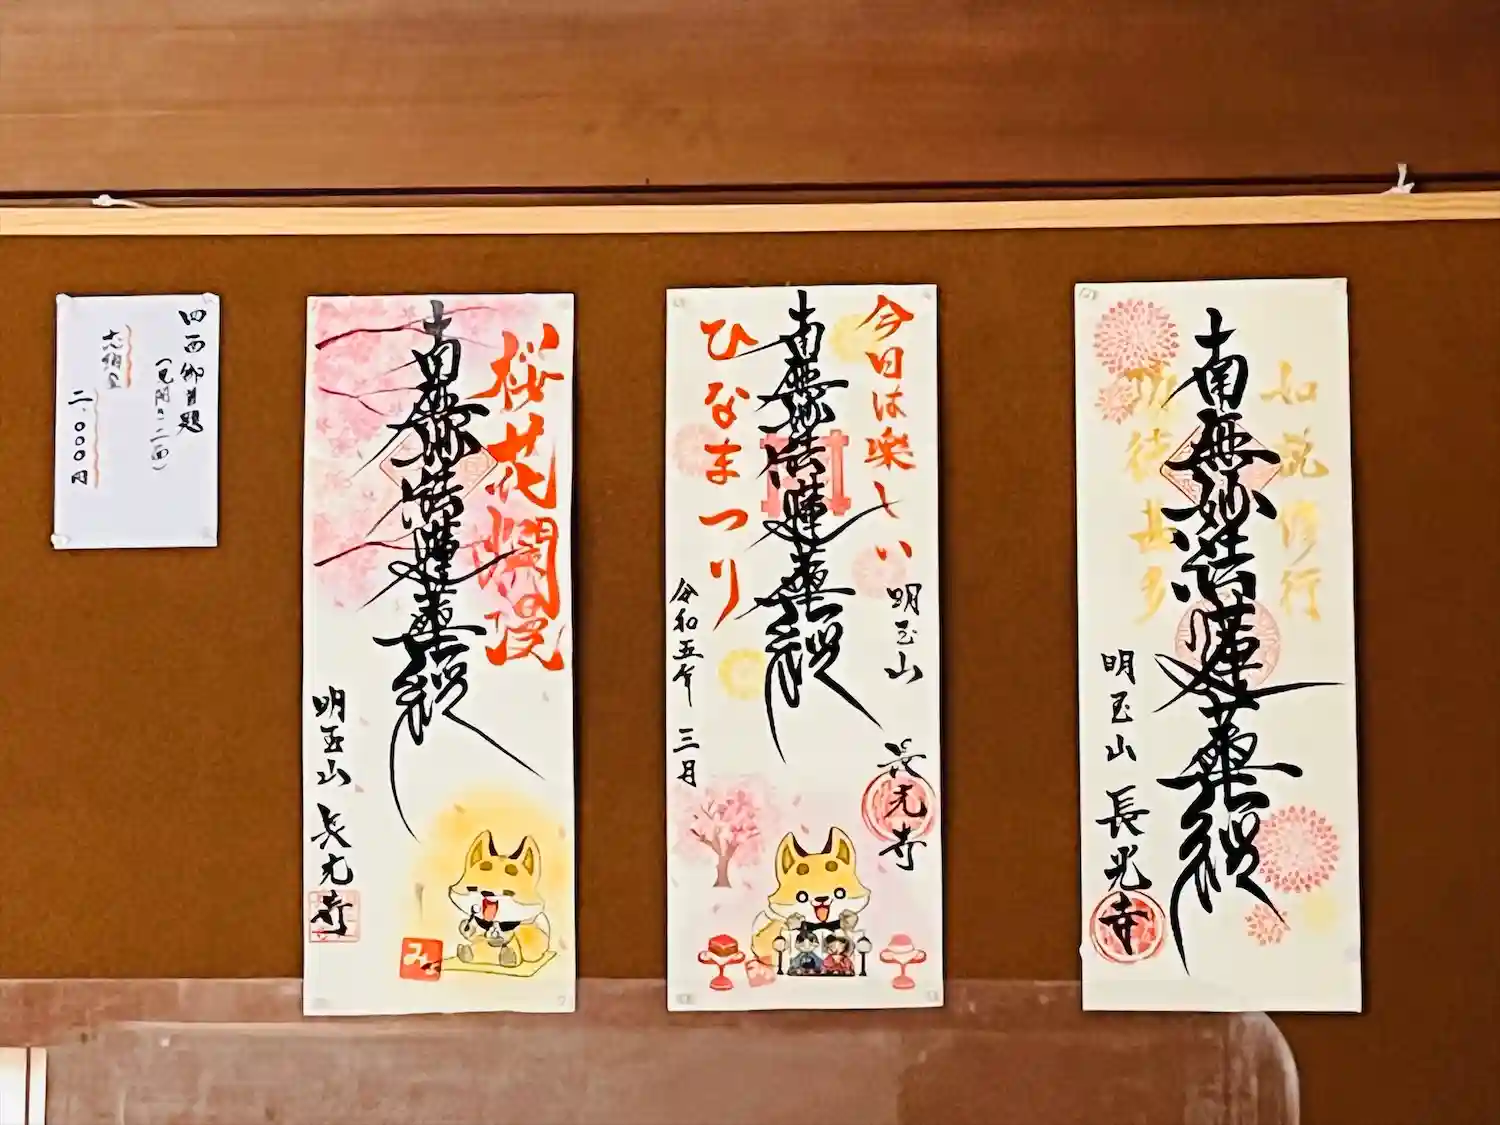 四面御首題
(見開き二面)
志納金
二、〇〇〇円
桜花爛漫
南無妙法蓮華経
明玉山 長光寺
今日は楽しい
ひなまつり
南無妙法蓮華経
明玉山 長光寺
令和五年 三月
如説修行
功徳甚多
南無妙法蓮華経
明玉山 長光寺